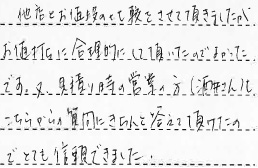 他店とお値段の比較とさせて頂きましたが
お値打ちに合理的にして頂いたのでよかった
です。又、見積り時の営業の方（酒井さん）も
こちらからの質問にきちんと答えて頂けたの
でとても信頼できました。